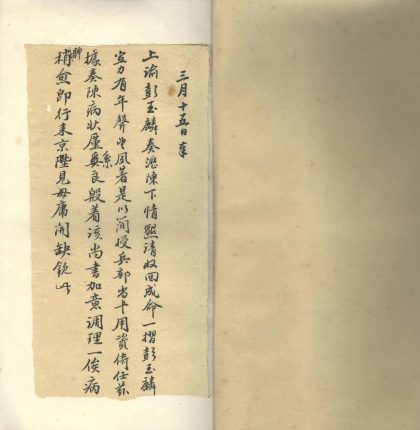 三月十五日奉
上諭彭玉麟奏瀝陳下情懇請收回成命一摺彭玉麟
宣力有年聲望夙著是以簡授兵部尚書用資倚任茲
據奏陳病狀屢係眞良殷着該尚書加意調理一俟病
稍愈即行來京陛見毋庸開缺欽此